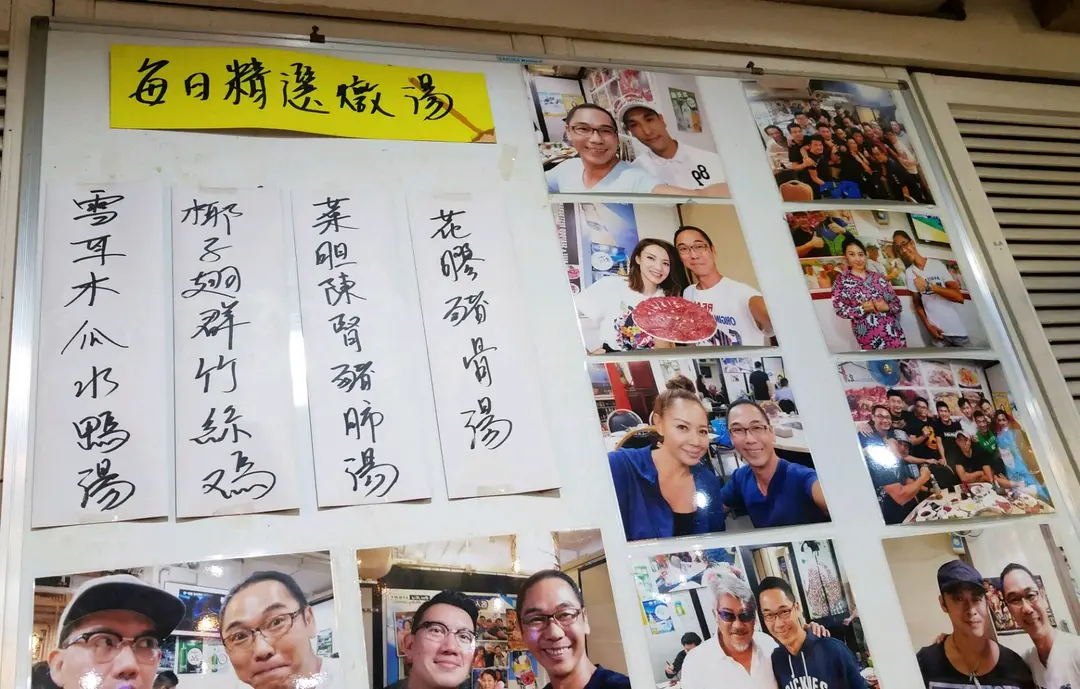 每日精選燉湯
雪耳木瓜水鴨湯
椰子翅群竹絲鸡
菜胆陳腎豬肺湯
花膠豬骨湯